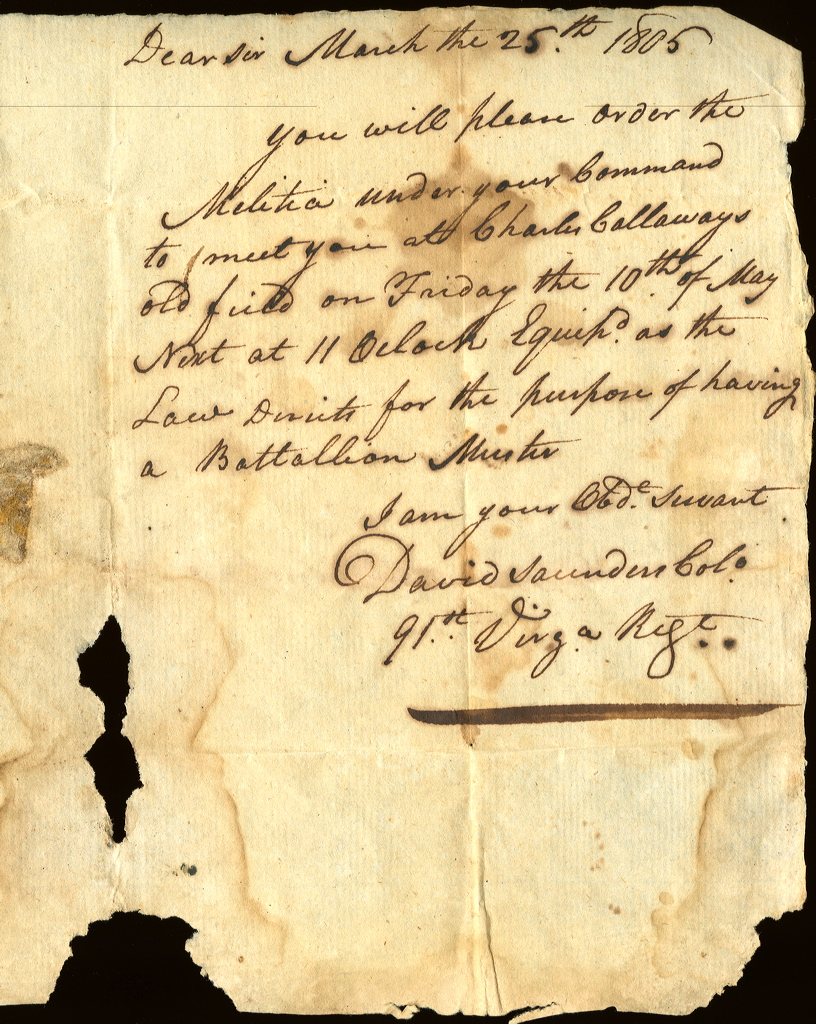 Dear sir March the 25.th 1805
you will please order the
Melitia under your Command
to meet you at Charles Callaways
old field on Friday the 10th of May
Next at 11 Oclock Equip.d as the
Law Dircts for the purpose of having
a Battallion Muster
I am your Obd.e servant
David Saunders Col.o
91.st Virg.a Reg.t